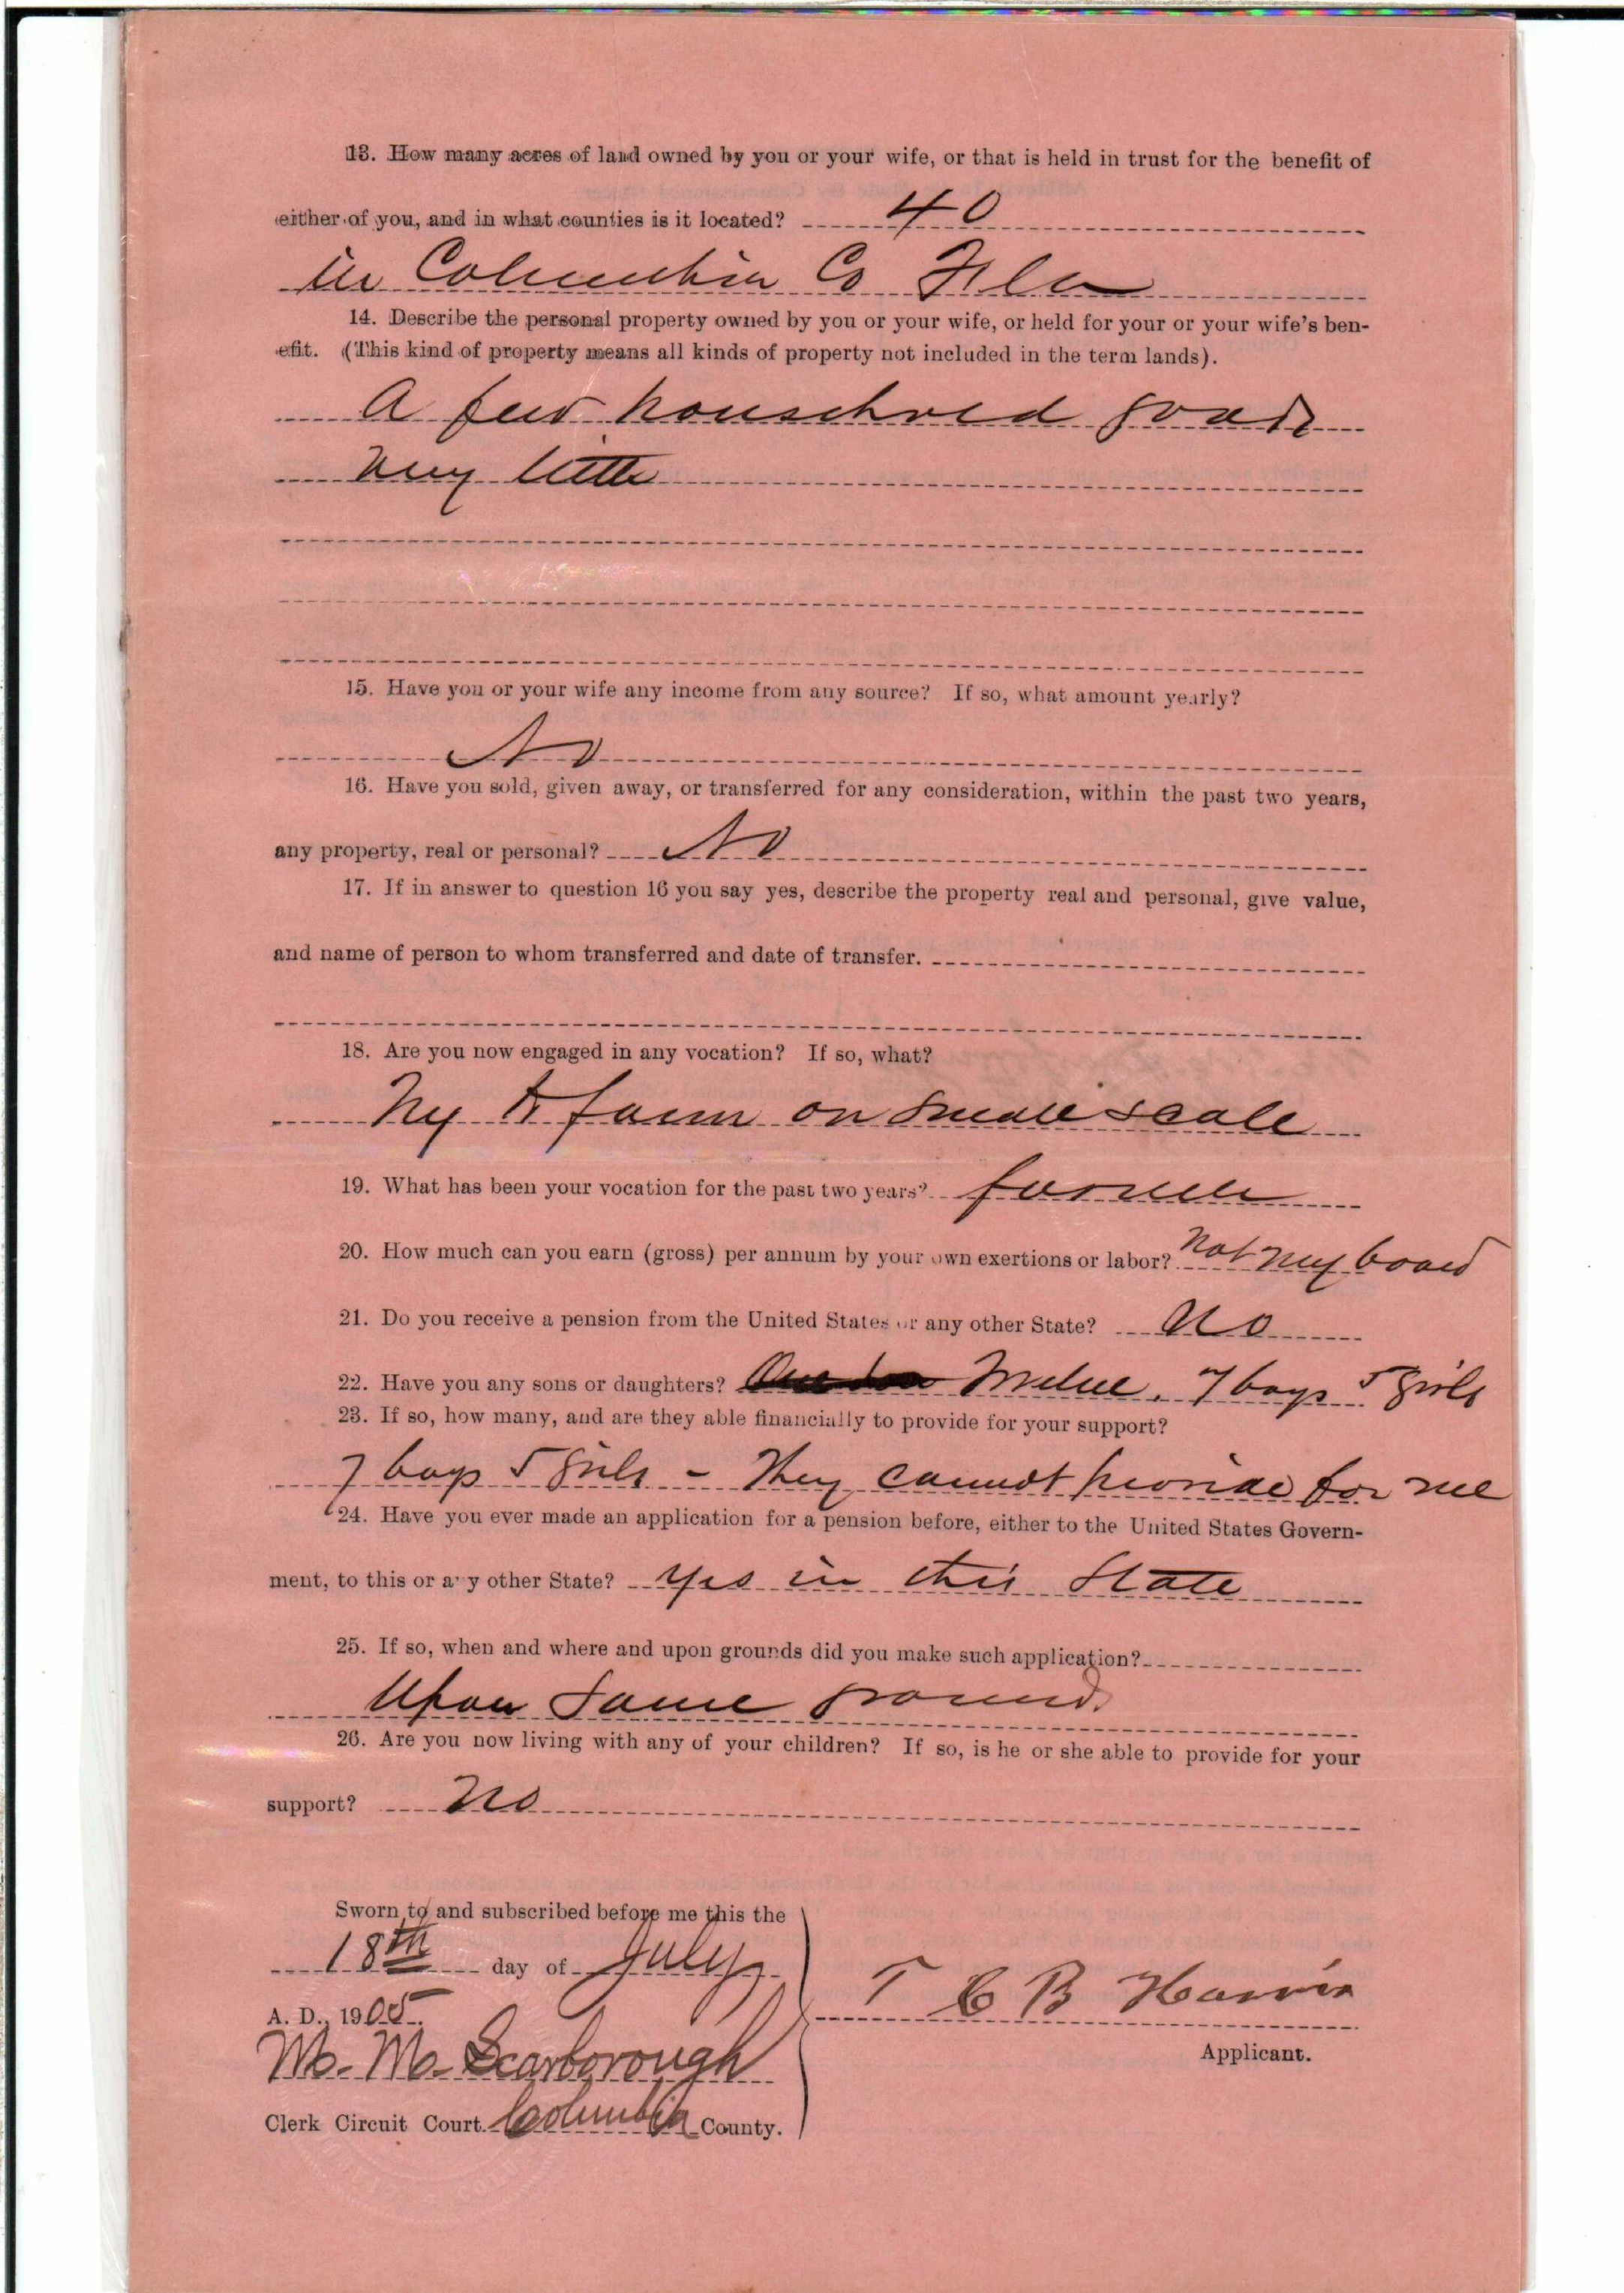 13. How many acres of land owned by you or your wife, or that is held in trust for the benefit of
either of you, and in what counties is it located? 40
in Columbia Co Fla
14. Describe the personal property owned by you or your wife, or held for your or your wife's ben-
efit. (This kind of property means all kinds of property not included in the term lands).
A few household goods
very little
15. Have you or your wife any income from any source? If so, what amount yearly?
No
16. Have you sold, given away, or transferred for any consideration, within the past two years,
any property, real or personal? No
17. If in answer to question 16 you say yes, describe the property real and personal, give value,
and name of person to whom transferred and date of transfer.
18. Are you now engaged in any vocation? If so, what?
Try to farm on small scale
19. What has been your vocation for the past two years? farmer
20. How much can you earn (gross) per annum by your own exertions or labor? not my board
21. Do you receive a pension from the United States or any other State? No
22. Have you any sons or daughters? Twelve. 7 boys 5 girls
23. If so, how many, and are they able financially to provide for your support?
7 boys 5 girls - They cannot provide for me
24. Have you ever made an application for a pension before, either to the United States Govern-
ment, to this or any other State? Yes in this State
25. If so, when and where and upon grounds did you make such application?
Upon same grounds
26. Are you now living with any of your children? If so, is he or she able to provide for your
support? No
Sworn to and subscribed before me this the
18th day of July
A. D., 1905.
T C B Harris
M. M. Scarborough
Applicant.
Clerk Circuit Court Columbia County.